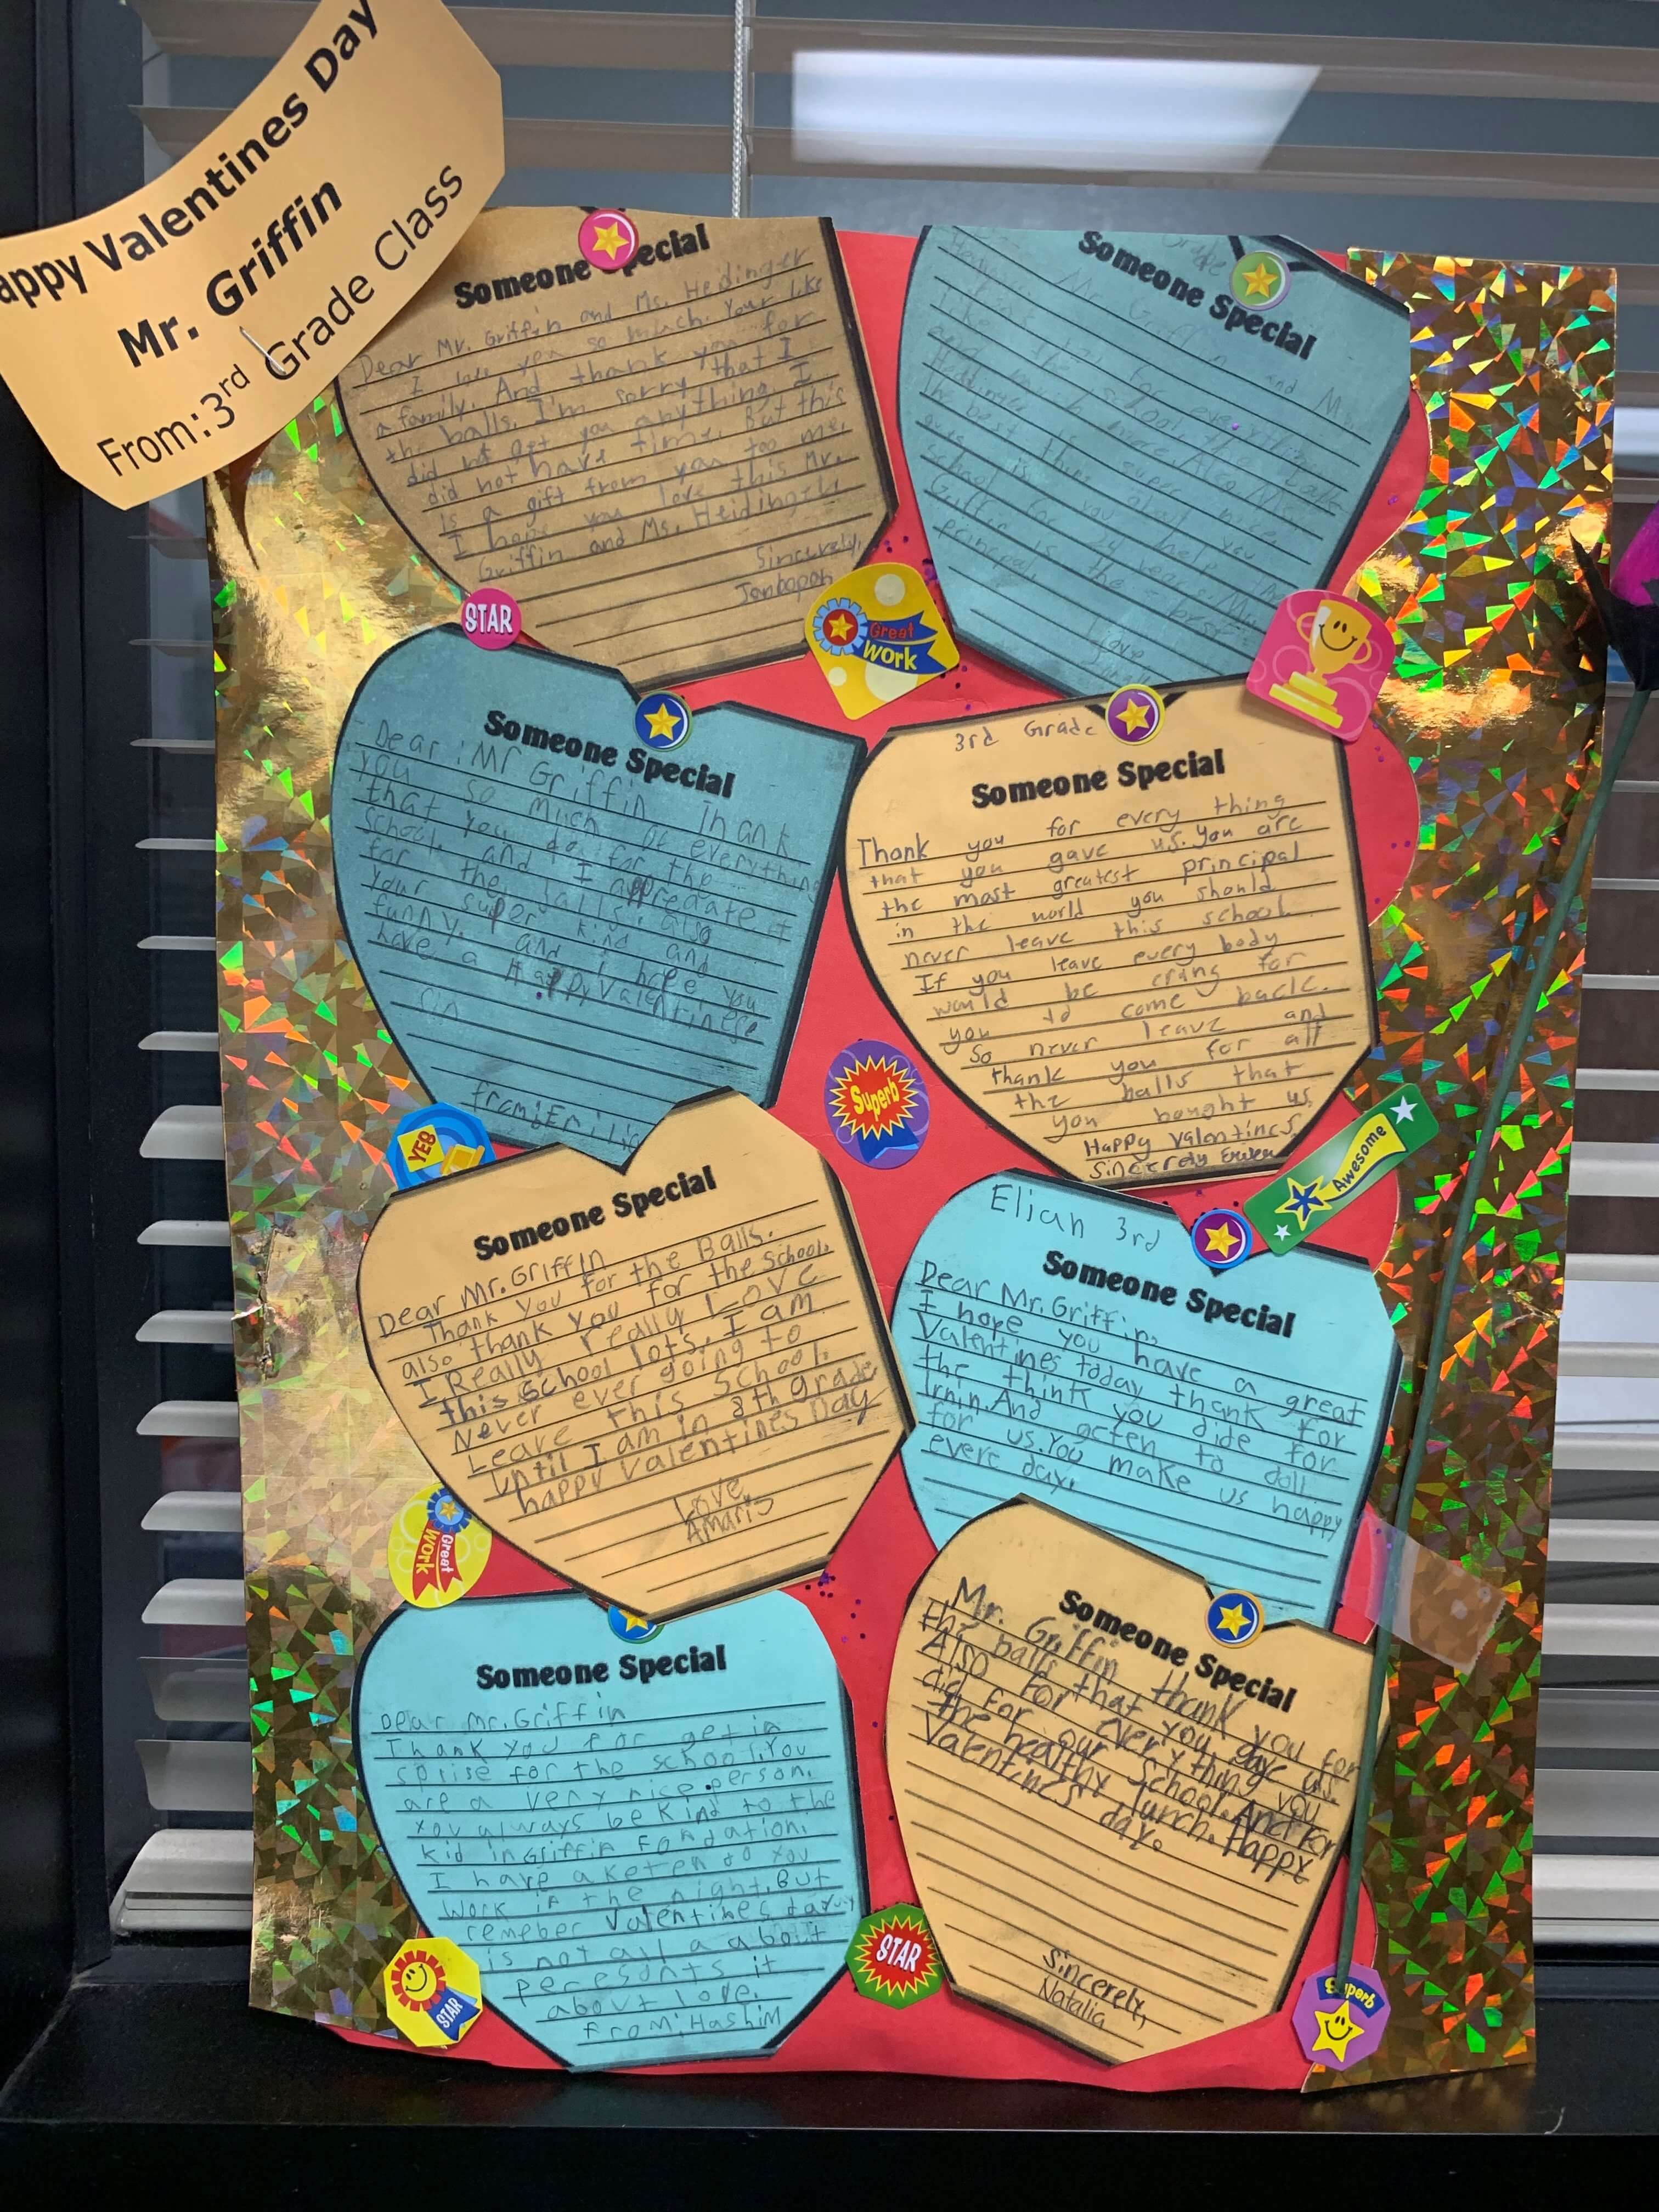 appy Valentines Day
Mr. Griffin
From: 3rd Grade Class
Someone Special
Dear Mr. Griffin and Ms. Heidinger
I love you so much. Your like
a family. And thank you for
the balls. I'm sorry that I
did not get you anything. I
did not have time. But this
is a gift from you too me.
I hope you love this Mr.
Griffin and Ms. Heidinger
Sincerely,
Someone Special
Mr. Griffin and M.
for everything
the school, the balls
and much more. Also Ms.
Heddinger
The best thing about
school is you help
Griffin
principal.
Love
STAR
Great
work
Someone Special
Dear : Mr Griffin Thank
you so much of everything
that you do for the
school. and I appredate it
for the balls. also
your super kind and
funny. and i hope you
have a Happy Valentinese
Sin
3rd Grade
Someone Special
Thank you for every thing
that you gave us. You are
the most greatest principal
in the world you should
never leave this school
If you leave every body
would be cring for
you to come back.
So never leave and
thank you for all
the balls that
you bought us
Happy valentines
Sincerely
Superb
YES
Awesome
Someone Special
Dear Mr. Griffin
Thank you for the Balls.
also thank you for the School.
I Really really Love
this school lots. I am
Never ever going to
Leave this School.
Until I am in 8th grade
happy valentines Day
Love,
Amaris
Eliah 3rd
Someone Special
Dear Mr. Griffin,
I hope you have a great
Valentines today thank for
the think you dide for
Irnin. And octen to doll
for us. You make us happy
evere day.
Great
Work
Someone Special
Dear Mr. Griffin
Thank you for get in
sprise for the school. You
are a very nice person.
you always be kind to the
kid in Griffin Fondation.
I have a keten do you
work in the night. But
remeber Valentines day
is not all a about
peresants it
about love.
from: Hashim
Someone Special
Mr. Griffin thank you for
the balls that you gave us.
Also for every thing you
did for our School. And for
the healthy lunch. Happy
Valentines day.
Sincerely,
Natalia
STAR
STAR
Superb